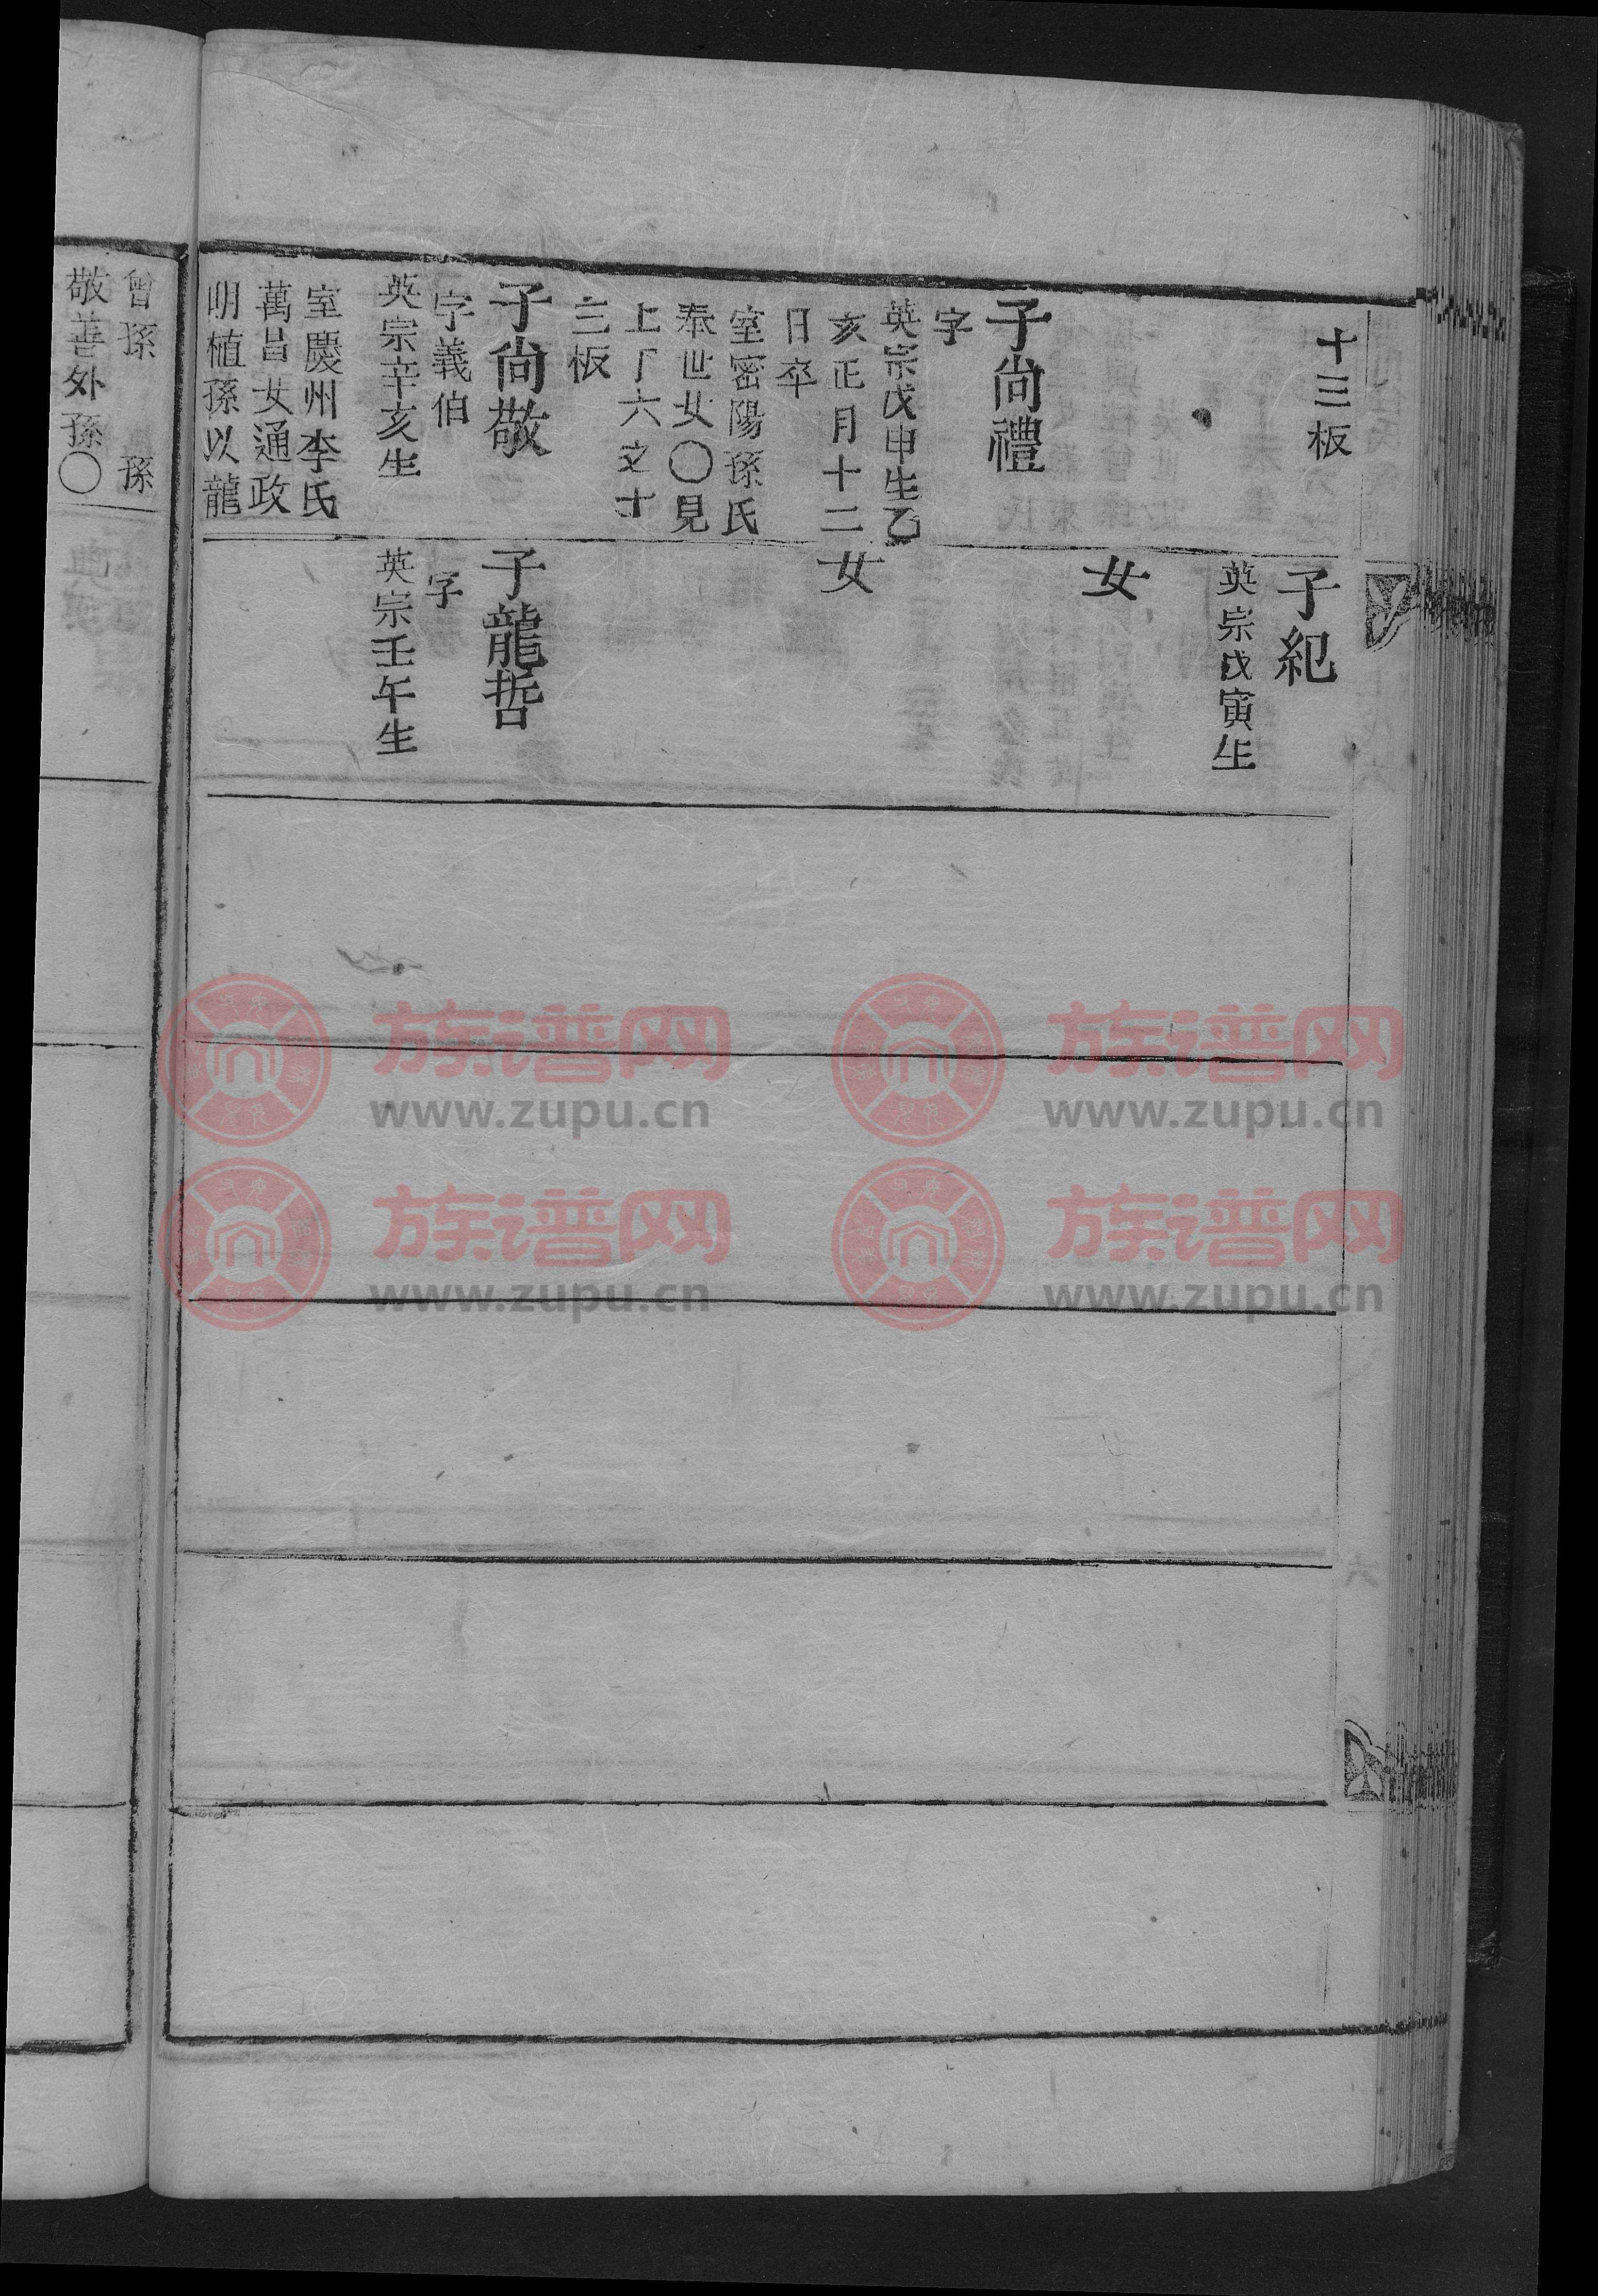 十三板
子尙禮
字
英宗戊申生乙
亥正月十二
日卒
室密陽孫氏
奉世女〇見
上丁六之十
三板
子尙敬
字義伯
英宗辛亥生
室慶州李氏
萬昌女通政
明植孫以龍
子紀
英宗戊寅生
女
女
子龍哲
字
英宗壬午生
曾孫 孫
敬善外孫〇
族谱网
www.zupu.cn
族谱网
www.zupu.cn
族谱网
www.zupu.cn
族谱网
www.zupu.cn